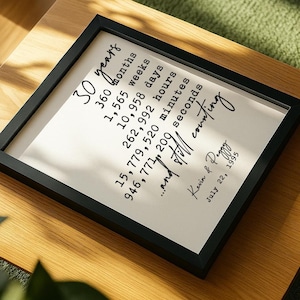 30 years
360 months
1,565 weeks
10,958 days
262,992 hours
15,779,520 minutes
946,771,209 seconds
...and still counting
Kevin & Peggy
July 22, 1995